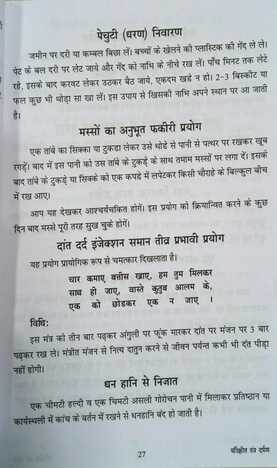 पेचुटी (धरण) निवारण
जमीन पर दरी या कम्बल बिछा लें। बच्चों के खेलने की प्लास्टिक की गेंद ले लें।
पेट के बल दरी पर लेट जाये और गेंद को नाभि के नीचे रख लें। पाँच मिनट तक लेटे
रहे, इसके बाद करवट लेकर उठकर बैठ जाये, एकदम खडे न हो। 2-3 बिस्कीट या
फल कुछ भी थोड़ा सा खा लें। इस उपाय से खिसकी नाभि अपने स्थान पर आ जाती
है।
मस्सों का अनुभूत फकीरी प्रयोग
एक तांबे का सिक्का या टुकडा लेकर उसे थोडे से पानी से पत्थर पर रगडकर खूब
रगड़ें। बाद में इस पानी को उस तांबे के टुकड़े के साथ तमाम मस्सों पर लगा दें। इसके
बाद तांबे के टुकड़े या सिक्के को एक कपडे में लपेटकर किसी चौराहे के बिल्कुल बीच
में रख आए।
आप यह देखकर आश्चर्यचकित होगें। इस प्रयोग को क्रियान्वित करने के कुछ
दिन बाद मस्से पूरी तरह सुख चुके होगें।
दांत दर्द इंजेक्शान समान तीव्र प्रभावी प्रयोग
यह प्रयोग प्रायोगिक रूप से चमत्कार दिखलाता है।
चार कमाए बत्तीस खाए, हम तुम मिलकर
साथ ही जाए, वास्ते कुतुब आलम के,
एक को छोडकर एक न जाए ।
विधि:
इस मंत्र को तीन बार पढ़कर अंगुली पर फूंक मारकर दांत पर मंजन पर 3 बार
पढ़कर रख ले। मंत्रीत मंजन से नित्य दातुन करने से जीवन पर्यन्त कभी भी दंत पीड़ा
नहीं होगी।
धन हानि से निजात
एक चीमटी हल्दी व एक चिमटी असली गोरोचन पानी में मिलाकर प्रतिष्ठान या
कार्यस्थली में कांच के बर्तन में रखने से धनहानि बंद हो जाती है।
27